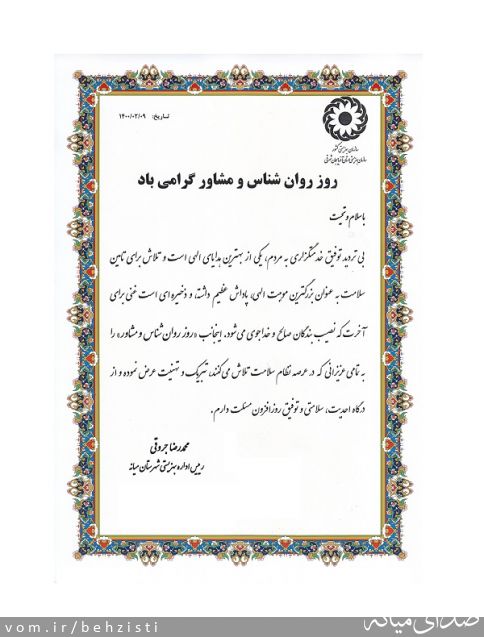 تاریخ: ۱۴۰۰/۰۲/۰۹
سازمان بهزیستی کشور
سازمان بهزیستی استان آذربایجان شرقی
روز روان شناس و مشاور گرامی باد
با سلام و تحیت
بی تردید توفیق خدمتگزاری به مردم، یکی از بهترین هدایای الهی است و تلاش برای تامین
سلامت به عنوان بزرگترین موهبت الهی، پاداش عظیم داشته و ذخیره‌ای است غنی برای
آخرت که نصیب بندگان صالح و خداجوی می‌شود. اینجانب «روز روان شناس و مشاور» را
به تمامی عزیزانی که در عرصه نظام سلامت تلاش می‌کنند، تبریک و تهنیت عرض نموده و از
درگاه احدیت، سلامتی و توفیق روزافزون مسئلت دارم.
محمدرضا جروقی
رییس اداره بهزیستی شهرستان میانه
vom.ir/behzisti
صدای میانه